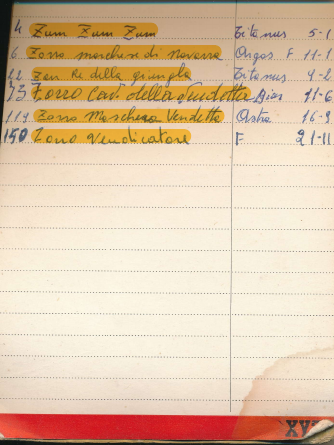 4 Zum Zum Zum Titanus 5-1
6 Zorro marchese di Navarra Orgos F 11-1
22 Zan Re della giungla Titanus 4-2
73 Zorro Cav. della Vendetta Dias 11-6
119 Zorro Maschera Vendetta Astra 16-9
150 Zorro Vendicatore F 21-11
XV